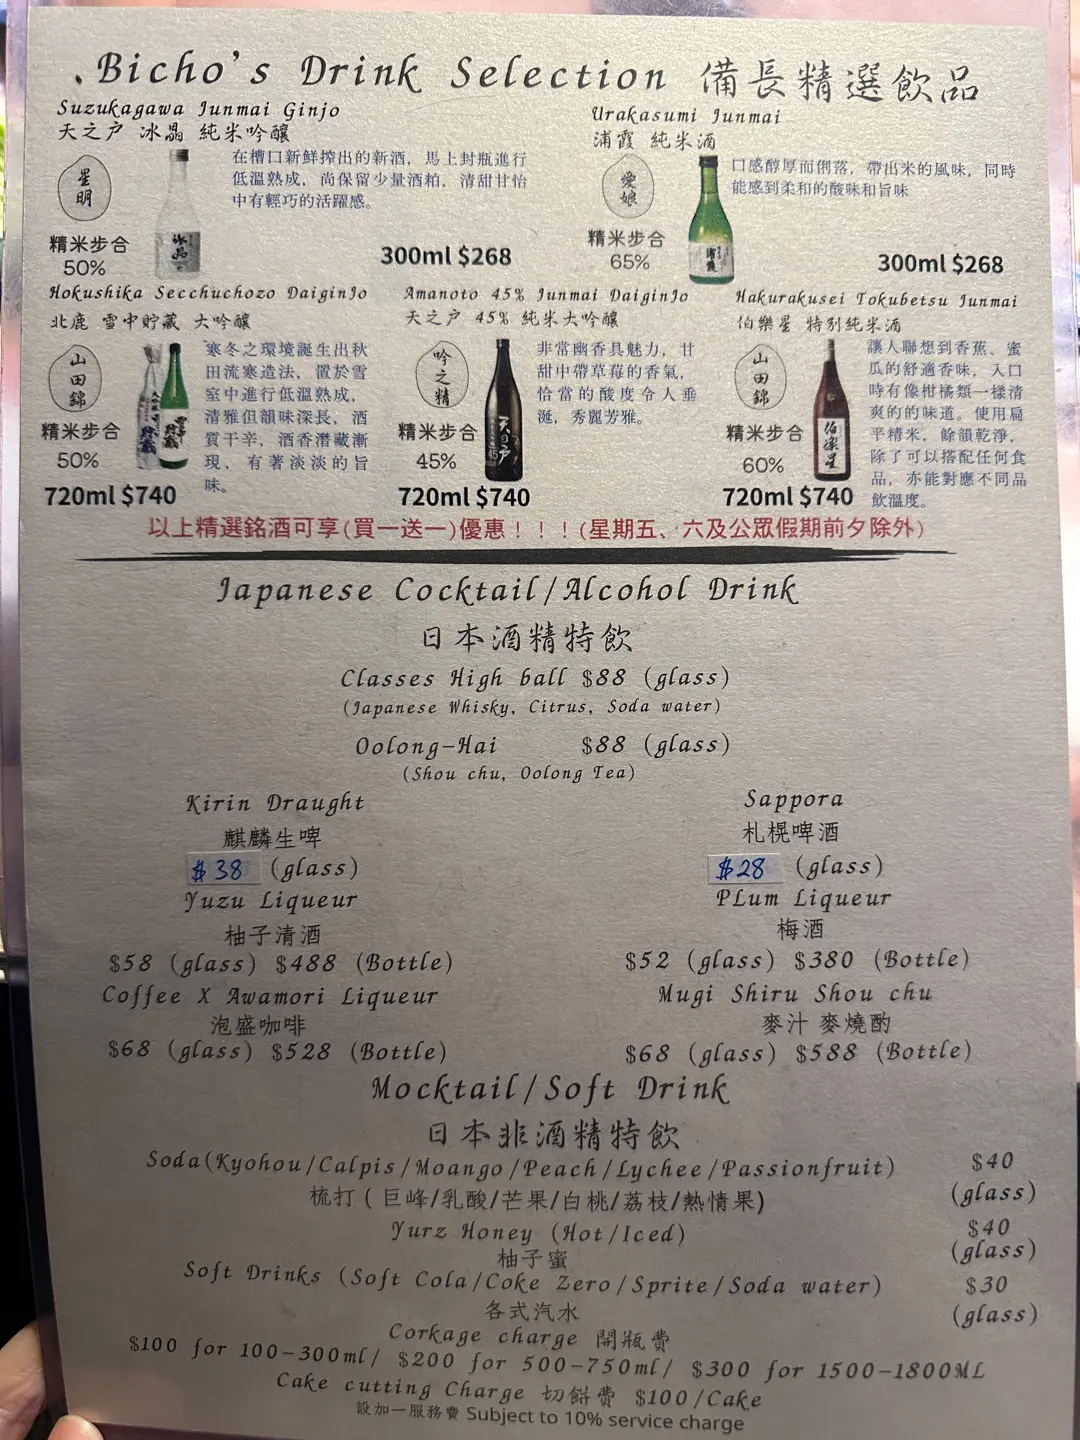 Bicho's Drink Selection 備長精選飲品
Suzukagawa Junmai Ginjo
天之户 冰晶 純米吟釀
星明
在槽口新鮮搾出的新酒，馬上封瓶進行
低溫熟成，尚保留少量酒粕，清甜甘怡
中有輕巧的活躍感。
精米步合
50%
300ml $268
Urakasumi Junmai
浦霞 純米酒
愛娘
口感醇厚而俐落，帶出米的風味，同時
能感到柔和的酸味和旨味
精米步合
65%
300ml $268
Hokushika Secchuchozo DaiginJo
北鹿 雪中貯藏 大吟釀
山田錦
寒冬之環境誕生出秋
田流寒造法，置於雪
室中進行低溫熟成，
清雅但韻味深長，酒
質干辛，酒香潛藏漸
現，有著淡淡的旨
味。
精米步合
50%
720ml $740
Amanoto 45% Junmai DaiginJo
天之户 45% 純米大吟釀
吟之精
非常幽香具魅力，甘
甜中帶草莓的香氣，
恰當的酸度令人垂
涎，秀麗芳雅。
精米步合
45%
720ml $740
Hakurakusei Tokubetsu Junmai
伯樂星 特别純米酒
山田錦
讓人聯想到香蕉、蜜
瓜的舒適香味，入口
時有像柑橘類一樣清
爽的的味道。使用扁
平精米，餘韻乾淨，
除了可以搭配任何食
品，亦能對應不同品
飲溫度。
精米步合
60%
720ml $740
以上精選銘酒可享(買一送一)優惠！！！(星期五、六及公眾假期前夕除外)
Japanese Cocktail/Alcohol Drink
日本酒精特飲
Classes High ball $88 (glass)
(Japanese Whisky, Citrus, Soda water)
Oolong-Hai $88 (glass)
(Shou chu, Oolong Tea)
Kirin Draught
麒麟生啤
$38 (glass)
Sappora
札幌啤酒
$28 (glass)
Yuzu Liqueur
柚子清酒
$58 (glass) $488 (Bottle)
PLum Liqueur
梅酒
$52 (glass) $380 (Bottle)
Coffee X Awamori Liqueur
泡盛咖啡
$68 (glass) $528 (Bottle)
Mugi Shiru Shou chu
麥汁 麥燒酌
$68 (glass) $588 (Bottle)
Mocktail/Soft Drink
日本非酒精特飲
Soda(Kyohou/Calpis/Moango/Peach/Lychee/Passionfruit) $40
梳打 ( 巨峰/乳酸/芒果/白桃/荔枝/熱情果) (glass)
Yurz Honey (Hot/Iced) $40
柚子蜜 (glass)
Soft Drinks (Soft Cola/Coke Zero/Sprite/Soda water) $30
各式汽水 (glass)
Corkage charge 開瓶費
$100 for 100-300ml/ $200 for 500-750ml/ $300 for 1500-1800ML
Cake cutting Charge 切餅費 $100/Cake
設加一服務費 Subject to 10% service charge